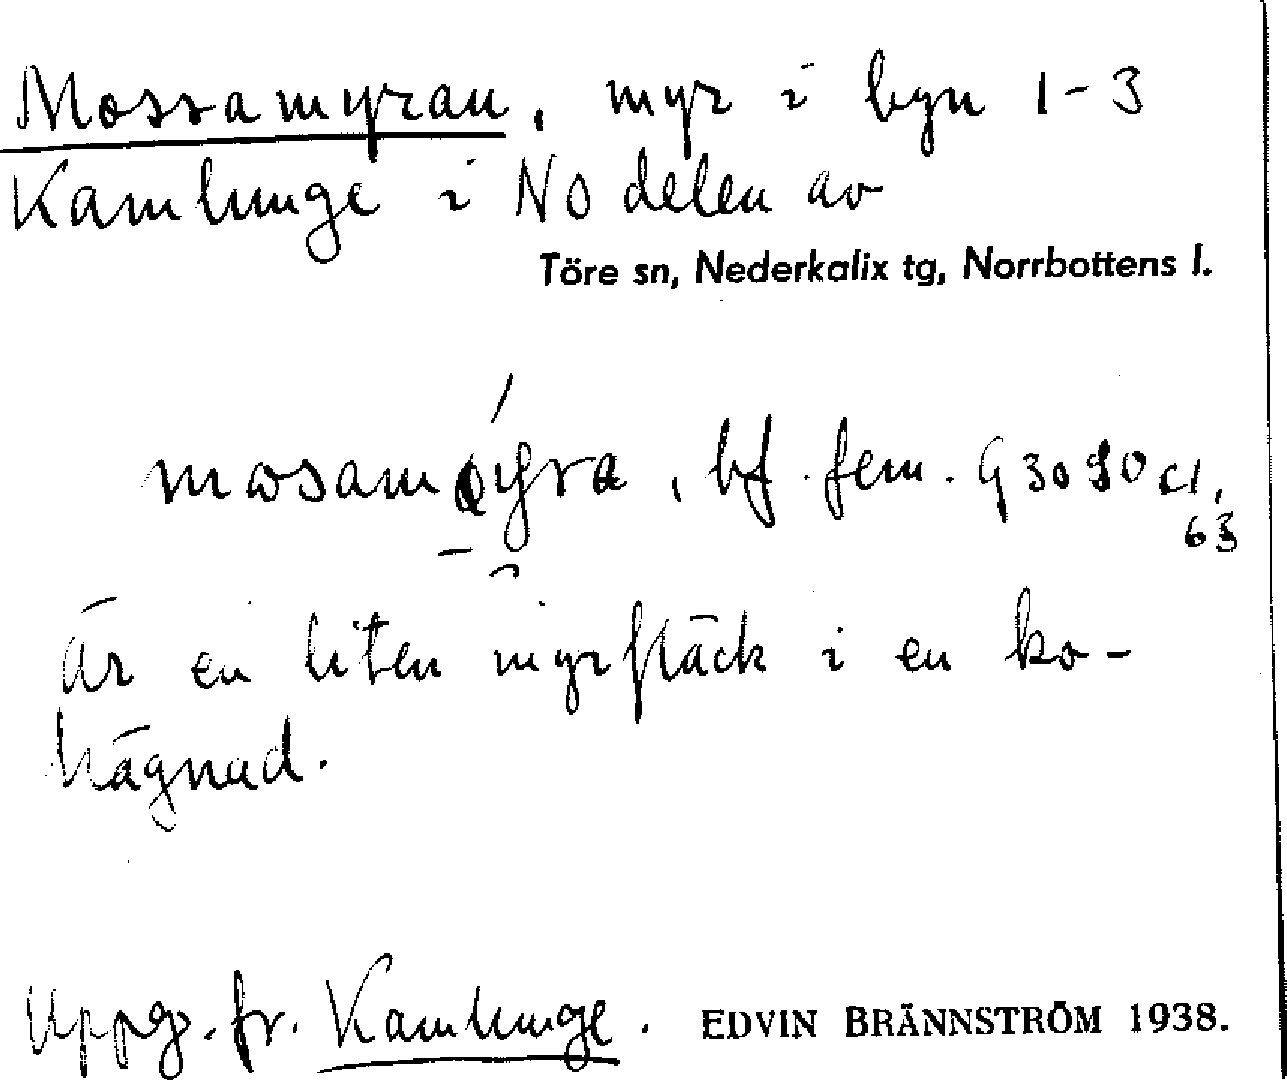 Mossamyran, myr i byn 1-3
Kamlunge i NO delen av
Töre sn, Nederkalix tg, Norrbottens l.
bf. fem.
63
är en liten myrfläck i en ko-
hägnad.
Uppg. fr. Kamlunge. EDVIN BRÄNNSTRÖM 1938.